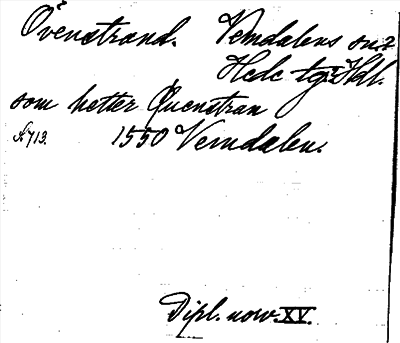 Övenstrand. Vemdalens sn.
Hede tg. Hkl.
som hetter Quenstran
s. 713. 1550 Vemdalen.
Dipl. norv. XV.